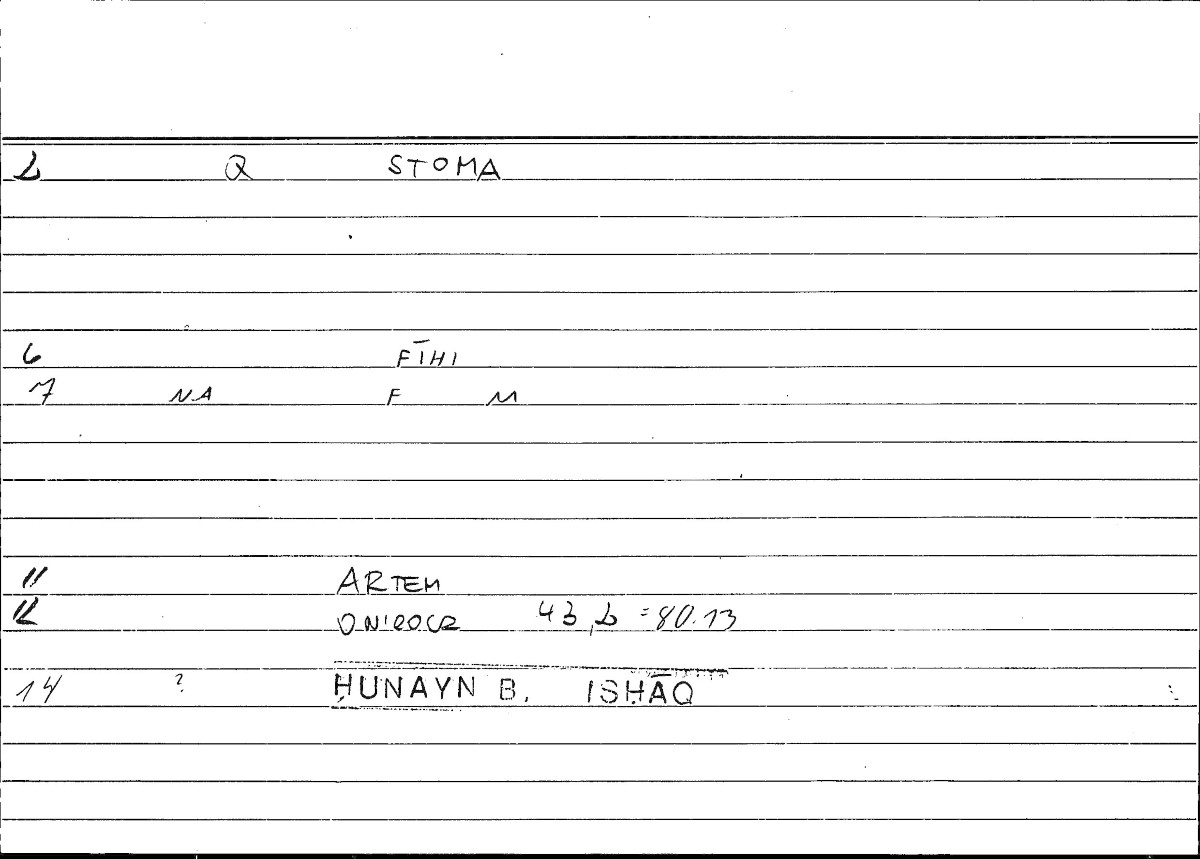 2 Q STOMA
6 FĪHI
7 NA F M
11 ARTEM
12 ONIROCR 43,2 = 80.13
14 ? ḤUNAYN B. ISḤĀQ